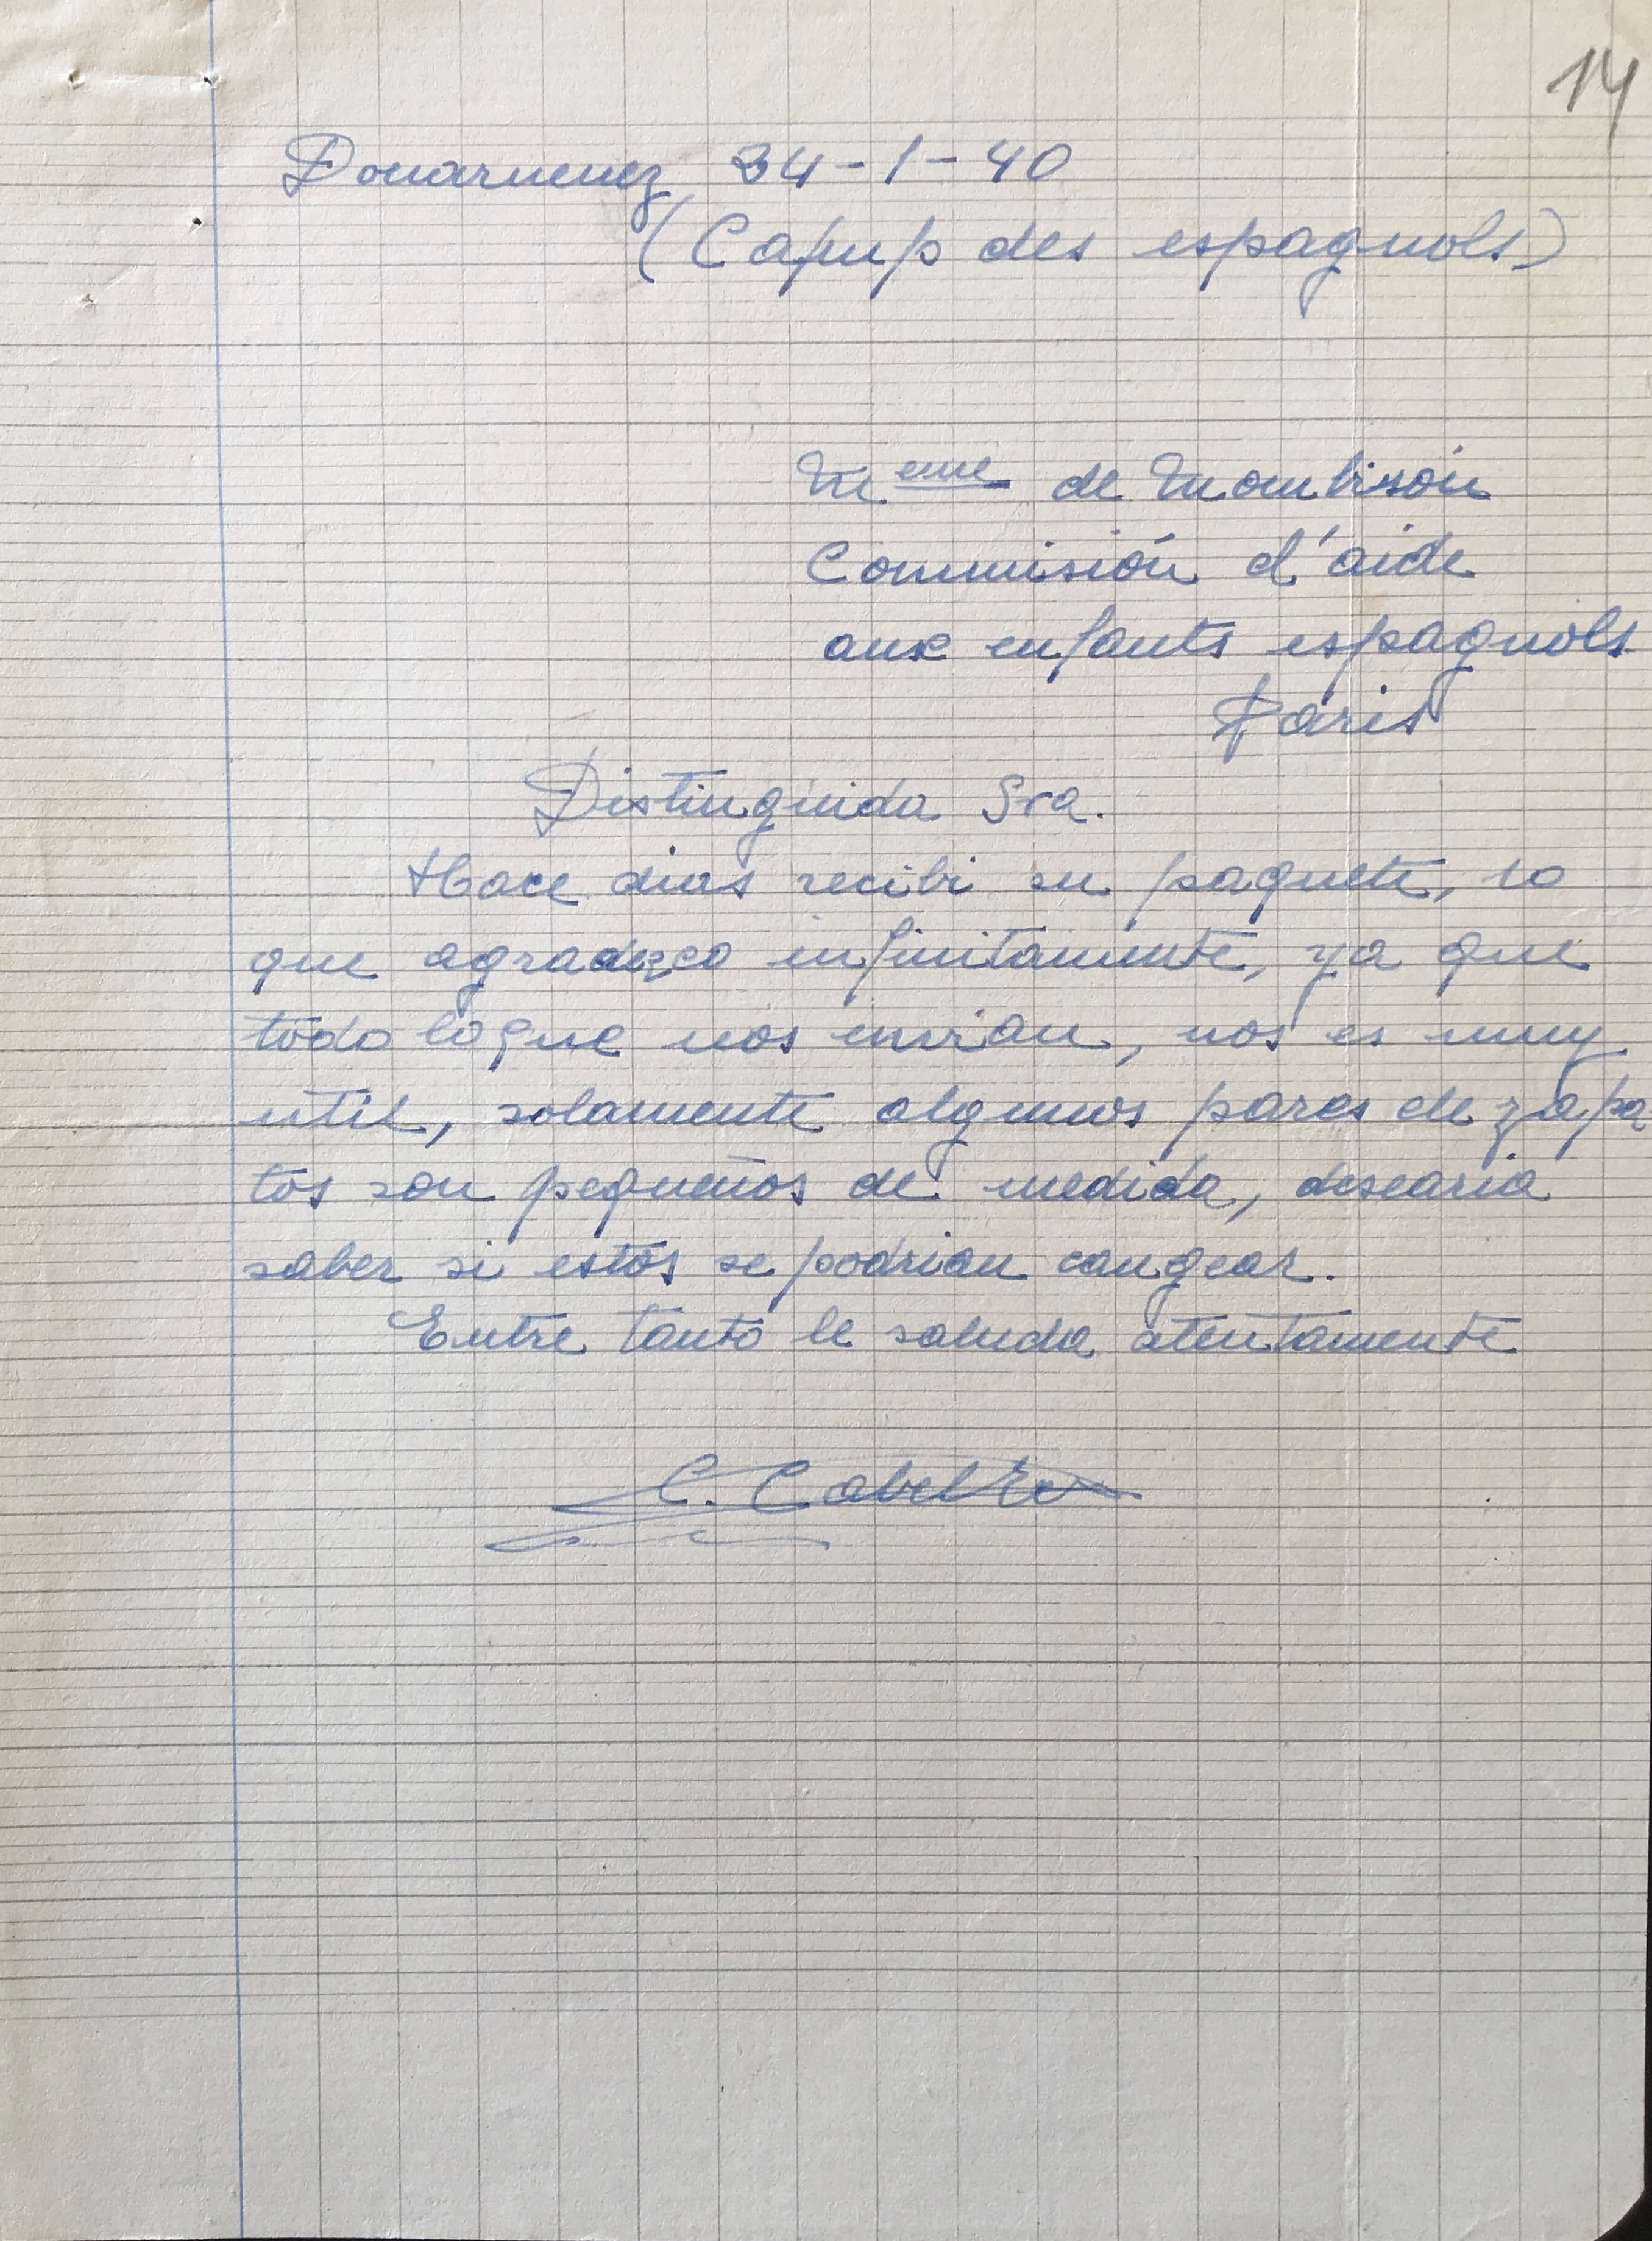 14
Douarnenez 24-1-40
(Camp des espagnols)
M.eme de Mombrisón
Commisión d'aide
aux enfants espagnols
Paris
Distinguida Sra.
Hace dias recibi su paquete, lo
que agradezco infinitamente, ya que
todo lo que nos envian, nos es muy
util, solamente algunos pares de zapa
tos son pequeños de medida, desearia
saber si estos se podrian cangear.
Entre tanto le saluda atentamente
C.